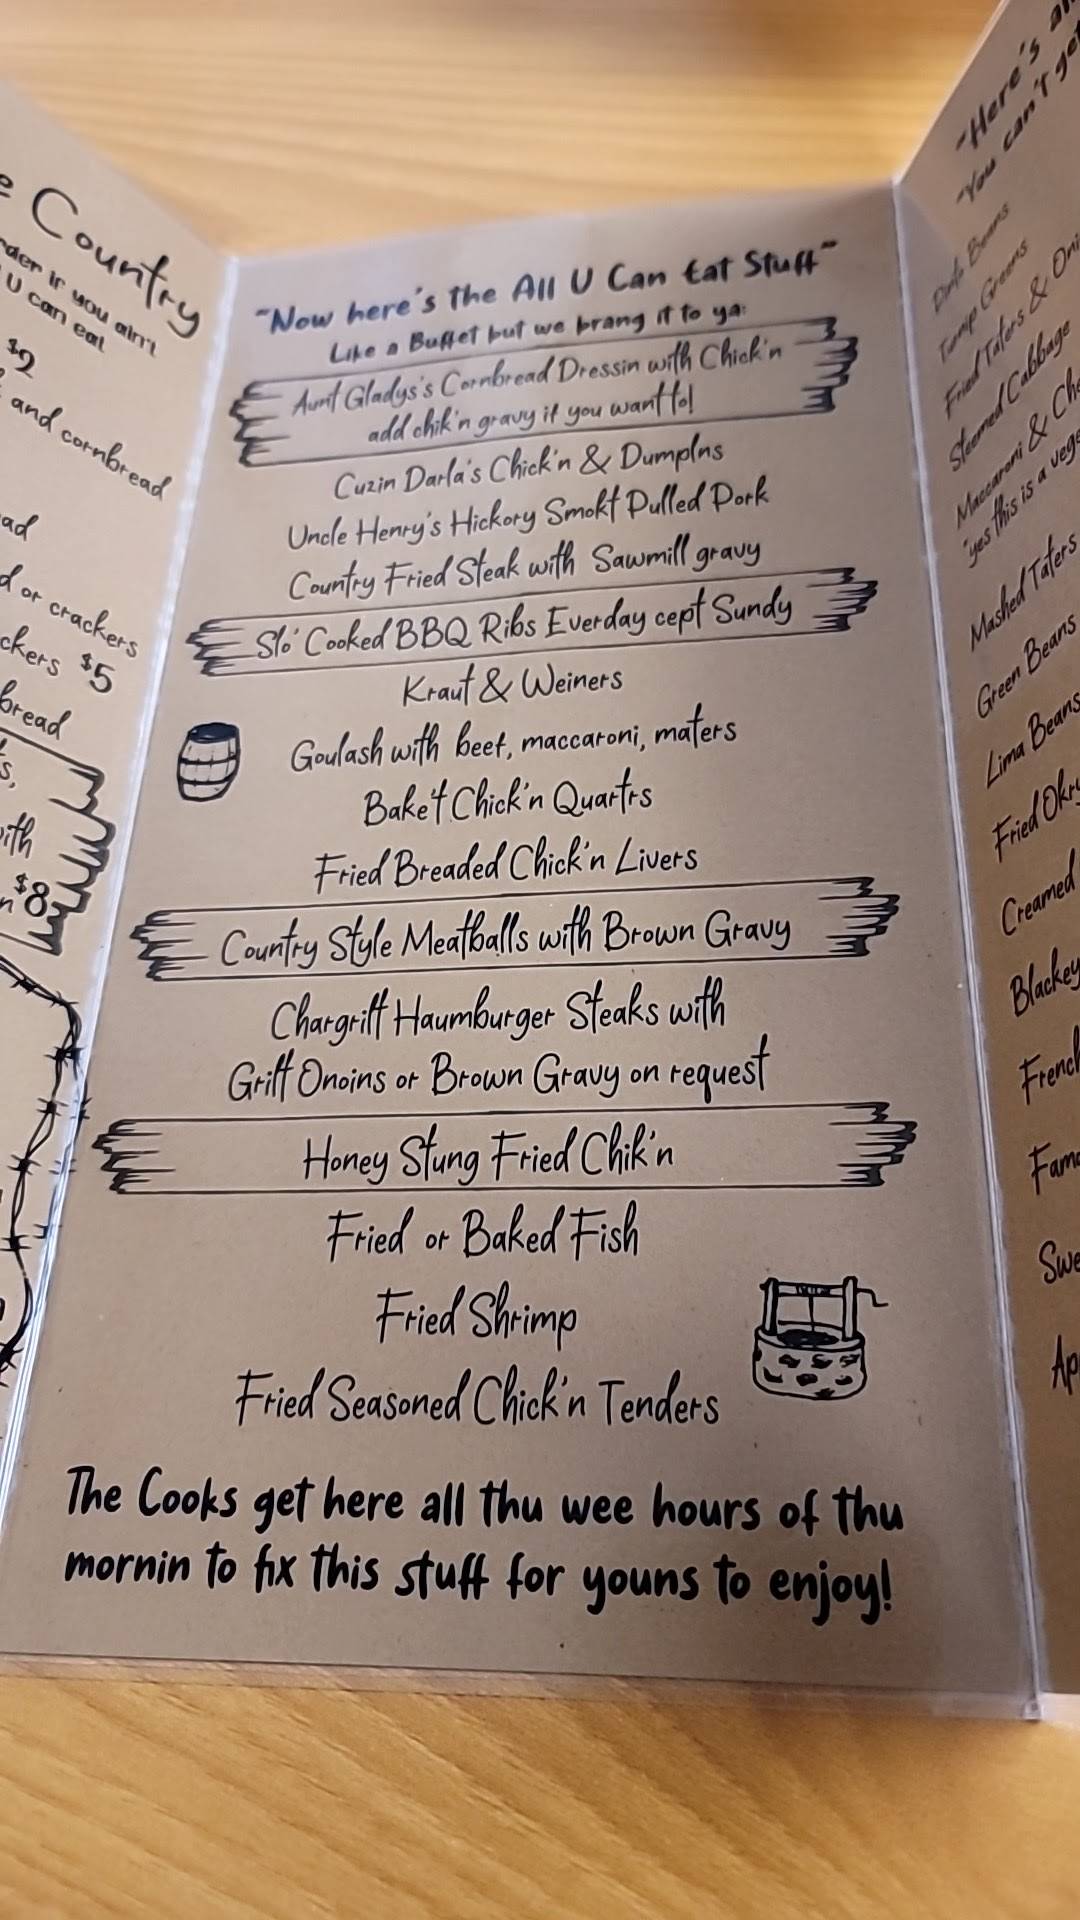 e Country
rder if you ain't
U can eat
$2
and cornbread
ad
d or crackers
ckers $5
bread
s,
with
$8
"Now here's the All U Can Eat Stuff"
Like a Buffet but we brang it to ya:
Aunt Gladys's Cornbread Dressin with Chick'n
add chik'n gravy if you want to!
Cuzin Darla's Chick'n & Dumplns
Uncle Henry's Hickory Smokt Pulled Pork
Country Fried Steak with Sawmill gravy
Slo' Cooked BBQ Ribs Everday cept Sundy
Kraut & Weiners
Goulash with beef, maccaroni, maters
Bake't Chick'n Quartrs
Fried Breaded Chick'n Livers
Country Style Meatballs with Brown Gravy
Chargrilt Haumburger Steaks with
Grilt Onoins or Brown Gravy on request
Honey Stung Fried Chik'n
Fried or Baked Fish
Fried Shrimp
Fried Seasoned Chick'n Tenders
The Cooks get here all thu wee hours of thu
mornin to fix this stuff for youns to enjoy!
"Here's al
"You can't get
Pinto Beans
Turnip Greens
Fried Taters & Oni
Steemed Cabbage
Maccaroni & Che
"yes this is a vege
Mashed Taters
Green Beans
Lima Beans
Fried Okry
Creamed
Blackey
French
Famo
Swe
Ap